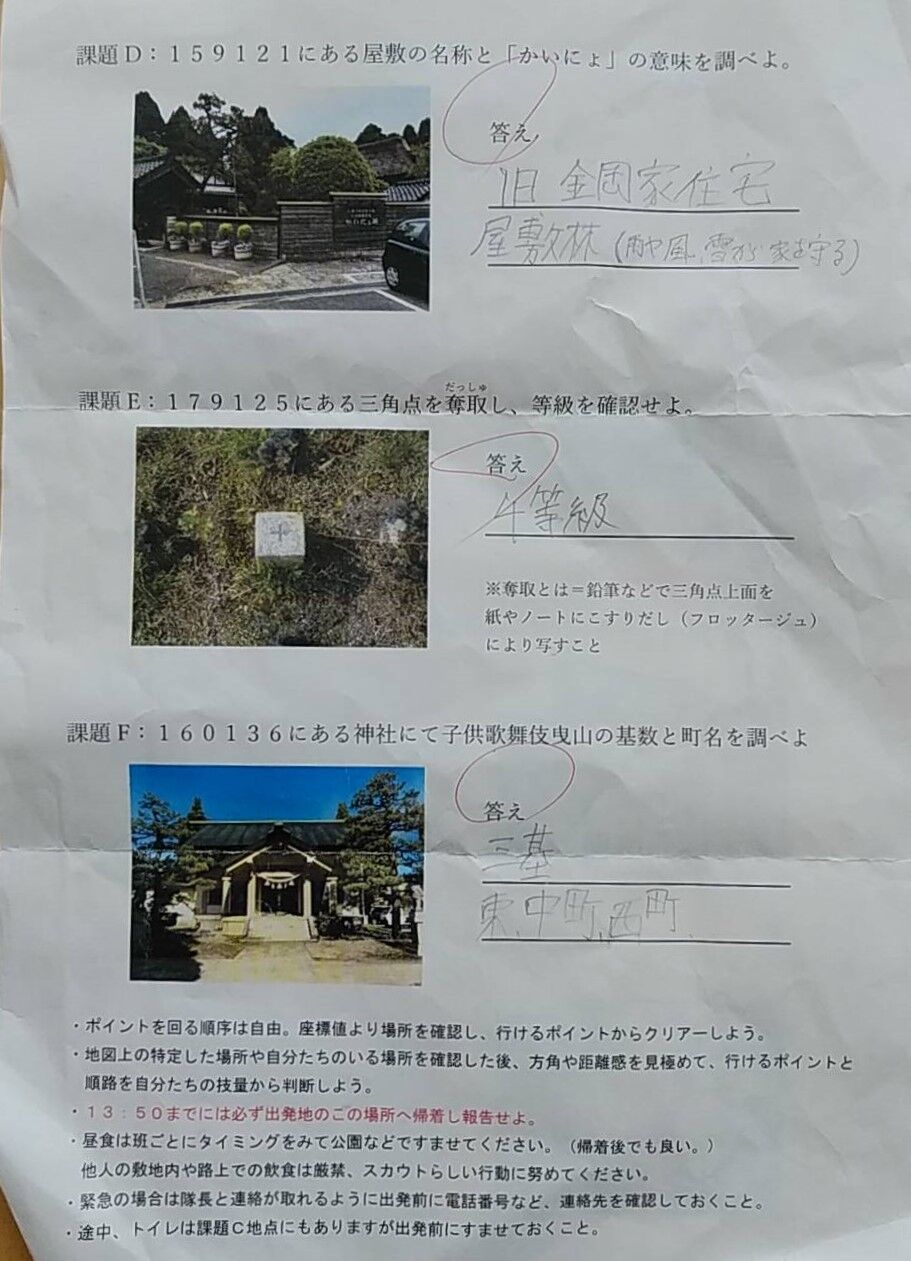 課題D：159121にある屋敷の名称と「かいにょ」の意味を調べよ。
答え
旧 金岡家住宅
屋敷林(雨や風、雪から家を守る)
だっしゅ
課題E：179125にある三角点を奪取し、等級を確認せよ。
答え
4等級
※奪取とは＝鉛筆などで三角点上面を
紙やノートにこすりだし（フロッタージュ）
により写すこと
課題F：160136にある神社にて子供歌舞伎曳山の基数と町名を調べよ
答え
三基
東、中町、西町
・ポイントを回る順序は自由。座標値より場所を確認し、行けるポイントからクリアーしよう。
・地図上の特定した場所や自分たちのいる場所を確認した後、方角や距離感を見極めて、行けるポイントと
順路を自分たちの技量から判断しよう。
・13：50までには必ず出発地のこの場所へ帰着し報告せよ。
・昼食は班ごとにタイミングをみて公園などですませてください。（帰着後でも良い。）
他人の敷地内や路上での飲食は厳禁、スカウトらしい行動に努めてください。
・緊急の場合は隊長と連絡が取れるように出発前に電話番号など、連絡先を確認しておくこと。
・途中、トイレは課題C地点にもありますが出発前にすませておくこと。